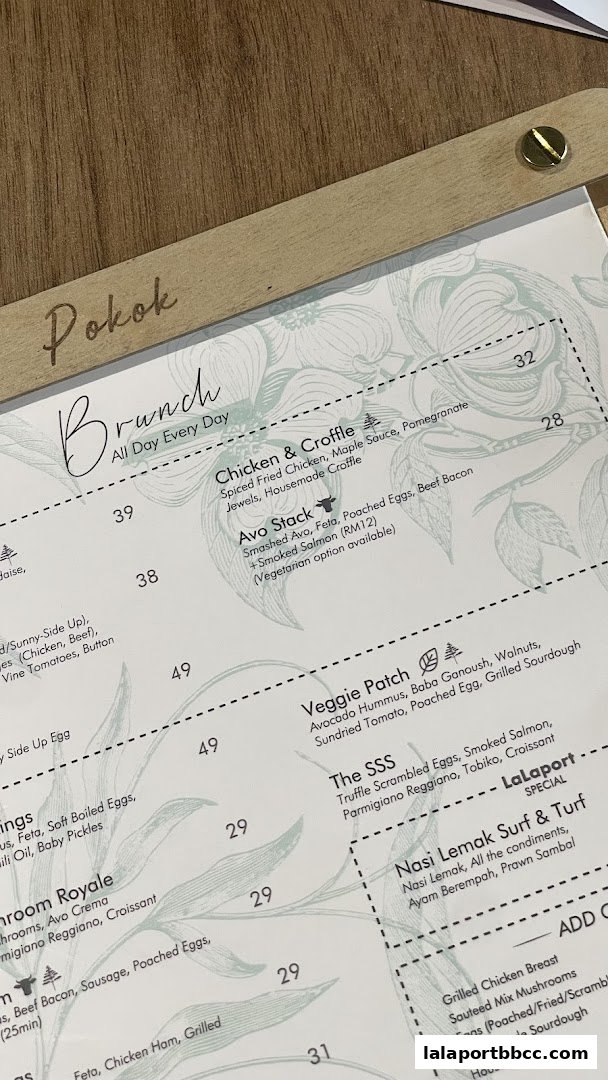 Pokok
Brunch
All Day Every Day
39
daise,
38
d/Sunny-Side Up),
es (Chicken, Beef),
Vine Tomatoes, Button
49
y Side Up Egg
49
ings
us, Feta, Soft Boiled Eggs,
ili Oil, Baby Pickles
29
hroom Royale
hrooms, Avo Crema
migiano Reggiano, Croissant
29
m
s, Beef Bacon, Sausage, Poached Eggs,
(25min)
29
gs
Feta, Chicken Ham, Grilled
31
Chicken & Croffle 32
Spiced Fried Chicken, Maple Sauce, Pomegranate
Jewels, Housemade Croffle
Avo Stack 28
Smashed Avo, Feta, Poached Eggs, Beef Bacon
+Smoked Salmon (RM12)
(Vegetarian option available)
Veggie Patch
Avocado Hummus, Baba Ganoush, Walnuts,
Sundried Tomato, Poached Egg, Grilled Sourdough
The SSS
Truffle Scrambled Eggs, Smoked Salmon,
Parmigiano Reggiano, Tobiko, Croissant
LaLaport
SPECIAL
Nasi Lemak Surf & Turf
Nasi Lemak, All the condiments,
Ayam Berempah, Prawn Sambal
ADD O
Grilled Chicken Breast
Sauteed Mix Mushrooms
Eggs (Poached/Fried/Scrambl
Sourdough
lalaportbbcc.com